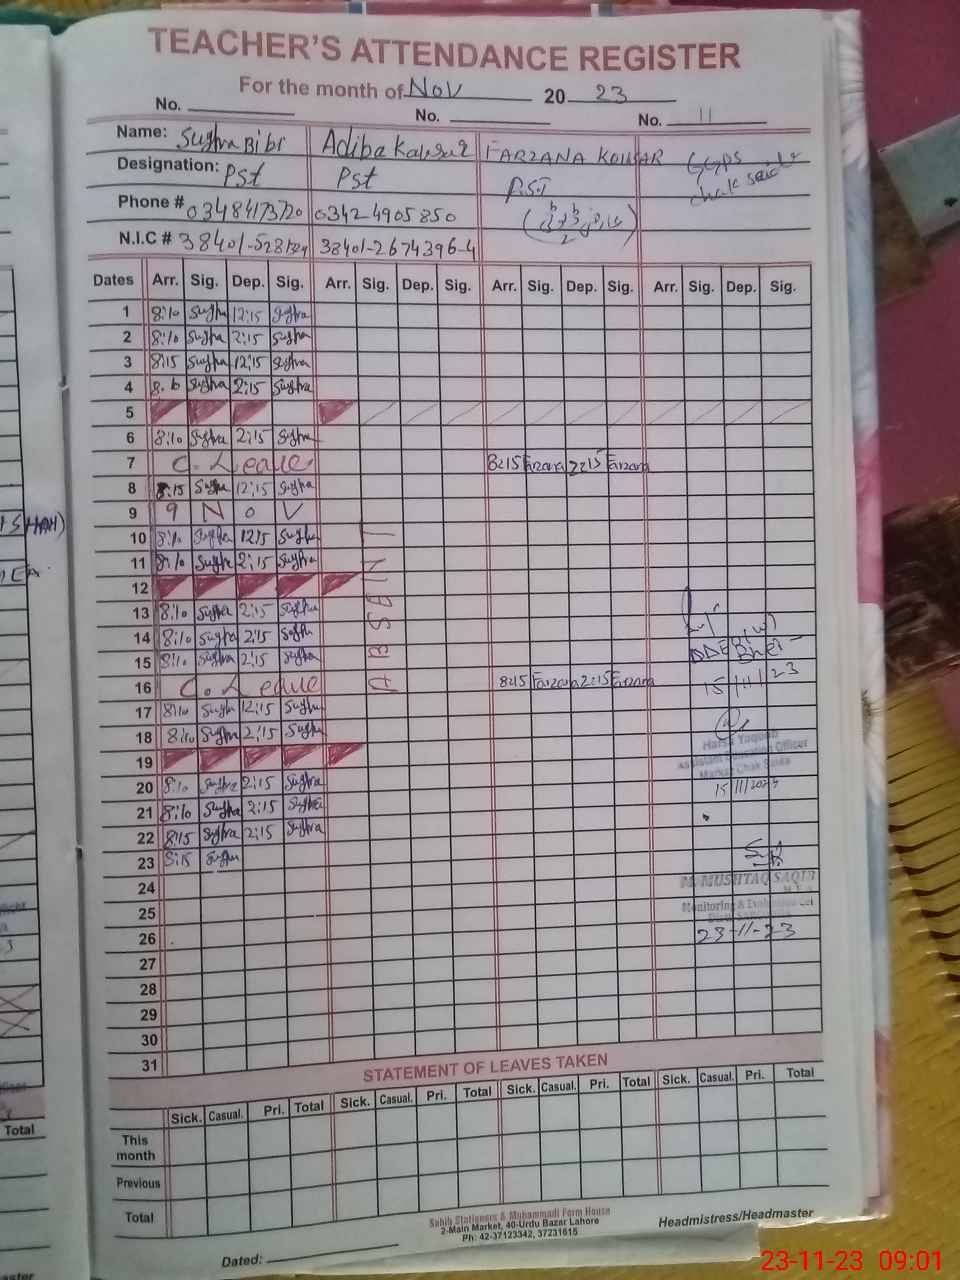 TEACHER'S ATTENDANCE REGISTER
For the month of Nov 20 23
No. No. No. 11
Name: Sughra Bibi Adiba Kausar FARZANA KOUSAR GGPS
Designation: Pst Pst P.S.T chak saida
Phone # 03484173720 03424905850
N.I.C # 38401- 38401-2674396-4
Dates Arr. Sig. Dep. Sig. Arr. Sig. Dep. Sig. Arr. Sig. Dep. Sig. Arr. Sig. Dep. Sig.
1 8:10 Sughra 12:15 Sughra
2 8:10 Sughra 2:15 Sughra
3 8:15 Sughra 12:15 Sughra
4 Sughra 2:15 Sughra
5
6 8:10 Sughra 2:15 Sughra
7 C. Leave 8:15 Farzana 2:15 Farzana
8 8:15 Sughra 12:15 Sughra
9 9 N O V
10 8:10 Sughra 12:15 Sughra
11 8:10 Sughra 2:15 Sughra
12
13 8:10 Sughra 2:15 Sughra
14 8:10 Sughra 2:15 Sughra
15 8:10 Sughra 2:15 Sughra
16 C. Leave 8:15 Farzana 2:15 Farzana
17 8:10 Sughra 12:15 Sughra
18 8:10 Sughra 2:15 Sughra
19
20 8:10 Sughra 2:15 Sughra
21 8:10 Sughra 2:15 Sughra
22 8:15 Sughra 2:15 Sughra
23 8:15 Sughra
24
25
26
27
28
29
30
31
ABSENT
15/11/23
Yaqoob
Assistant Education Officer
Markaz Chak Saida
15/11/2023
M. MUSHTAQ SAQIB
Monitoring & Evaluation Cel
23-11-23
STATEMENT OF LEAVES TAKEN
Sick. Casual. Pri. Total Sick. Casual. Pri. Total Sick. Casual. Pri. Total Sick. Casual. Pri. Total
This month
Previous
Total
Sahib Stationers & Muhammadi Form House
2-Main Market, 40-Urdu Bazar Lahore
Ph: 42-37123342, 37231615
Headmistress/Headmaster
Dated:
Total
23-11-23 09:01